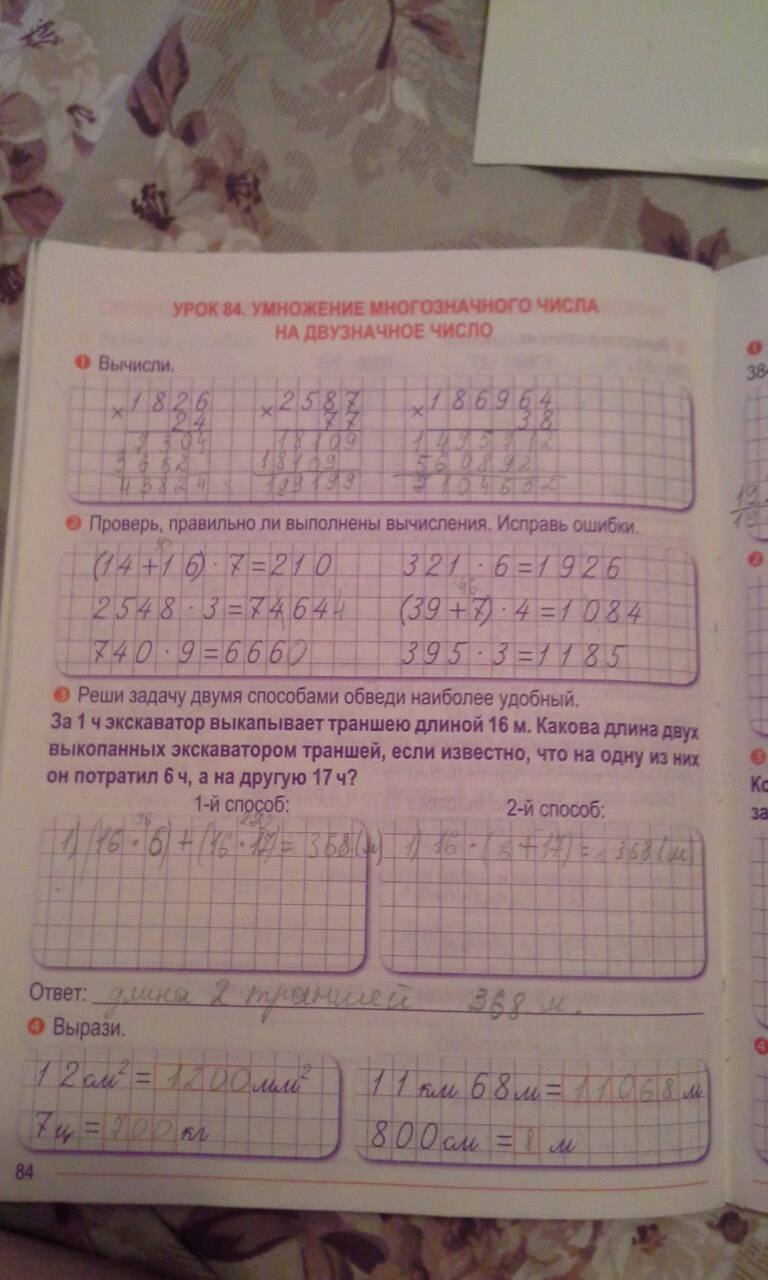 УРОК 84. УМНОЖЕНИЕ МНОГОЗНАЧНОГО ЧИСЛА
НА ДВУЗНАЧНОЕ ЧИСЛО
1 Вычисли.
×1826 ×2587 ×186964
24 77 38
7304 18109 1495712
3652 18109 560892
43824 199199 7104632
2 Проверь, правильно ли выполнены вычисления. Исправь ошибки.
30
(14+16)·7=210 321·6=1926
46
2548·3=74644 (39+7)·4=1084
740·9=6660 395·3=1185
3 Реши задачу двумя способами обведи наиболее удобный.
За 1 ч экскаватор выкапывает траншею длиной 16 м. Какова длина двух
выкопанных экскаватором траншей, если известно, что на одну из них
он потратил 6 ч, а на другую 17 ч?
1-й способ: 2-й способ:
96
1) (16·6)+(16·17)=368(м) 1) 16·(6+17)=368(м)
Ответ: длина 2 траншей 368 м.
4 Вырази.
12 см²=1200 мм² 11 км 68 м=11068 м
7 ц=700 кг 800 см=8 м
84
1
38
2
3
Ко
за
4